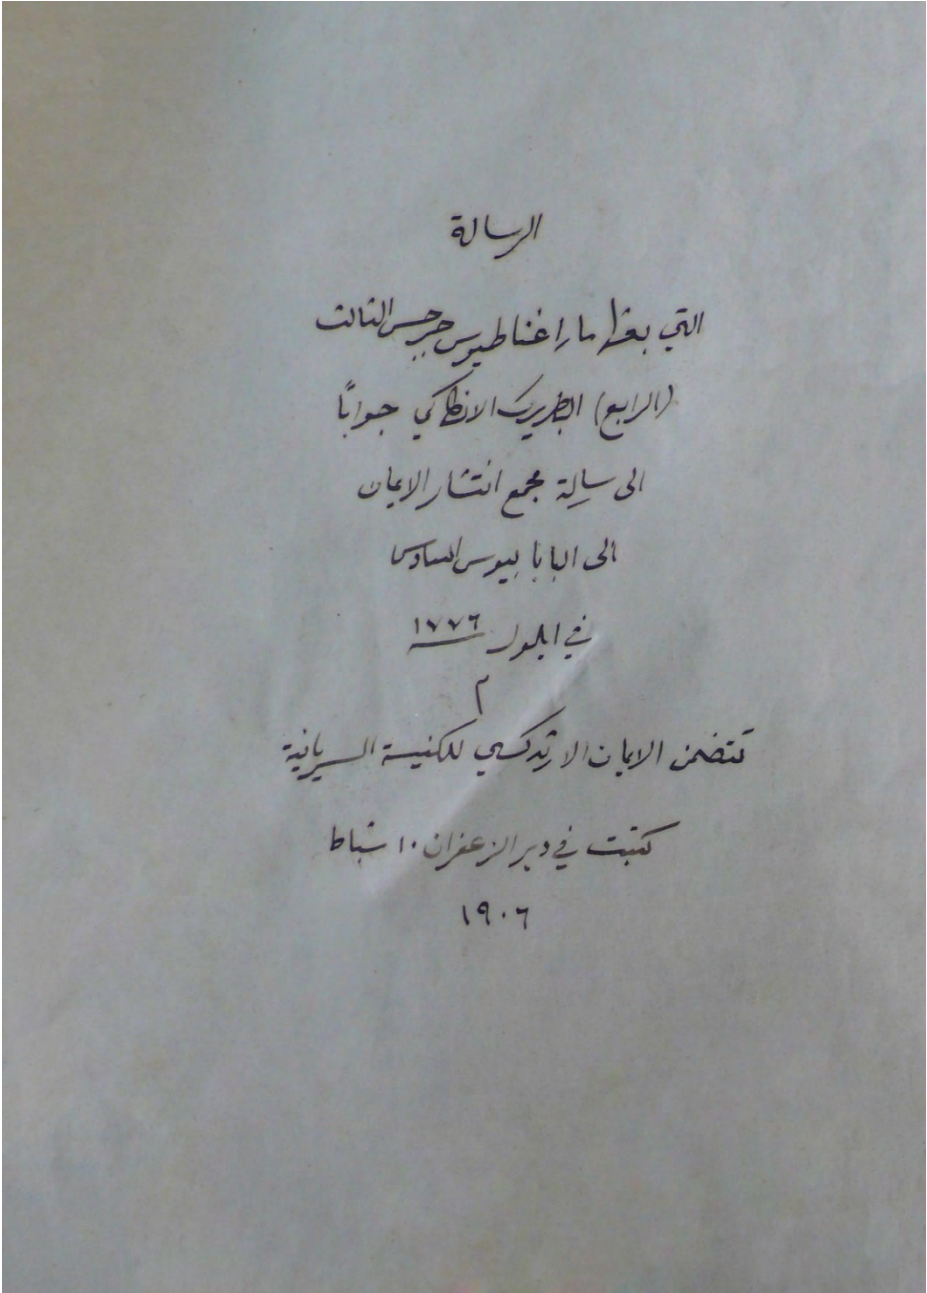 الرسالة
التي بعثها مار اغناطيوس جرجس الثالث
(الرابع) البطريرك الانطاكي جوابًا
الى سالِة مجمع انتشار الايمان
الى البابا بيوس السادس
في ايلول ١٧٧٦
م
تتضمن الايمان الارثدكسي للكنيسة السريانية
كتبت في دير الزعفران ١٠ شباط
١٩٠٦